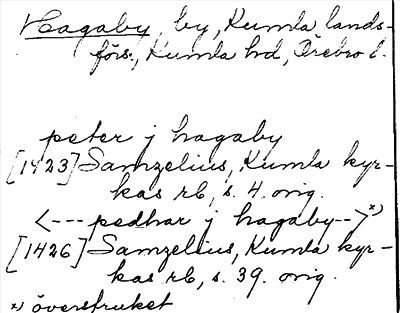 Hagaby, by, Kumla lands-
förs., Kumla hd, Örebro l.
peter j hagaby
[1423] Samzelius, Kumla kyr-
kas rb, s. 4. orig.
<--- pedhar j hagaby -->x)
[1426] Samzelius, Kumla kyr-
kas rb, s. 39. orig.
x) överstruket